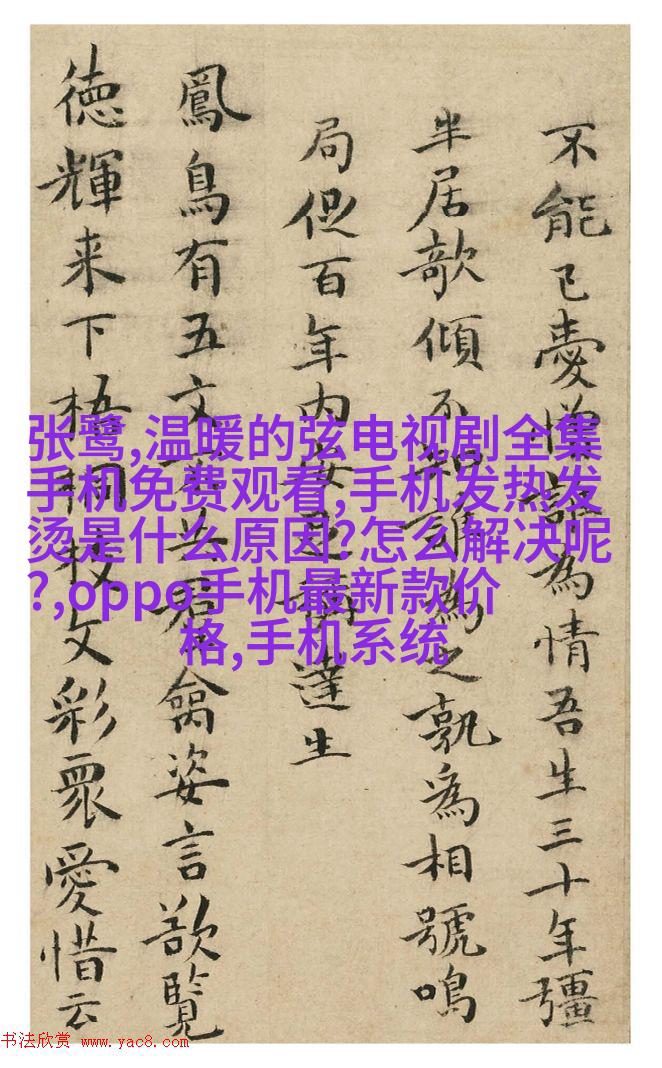 不能已憎為情吾生三十年彊
半居欹傾不知誰為之孰為相號鳴
局促百年内達生
鳳鳥有五文禽姿言欲覧
徳輝来下梧桐枝文彩眾愛惜云
张鹭,温暖的弦电视剧全集
手机免费观看,手机发热发
烫是什么原因?怎么解决呢
?,oppo手机最新款价
格,手机系统
书法欣赏 www.yac8.com